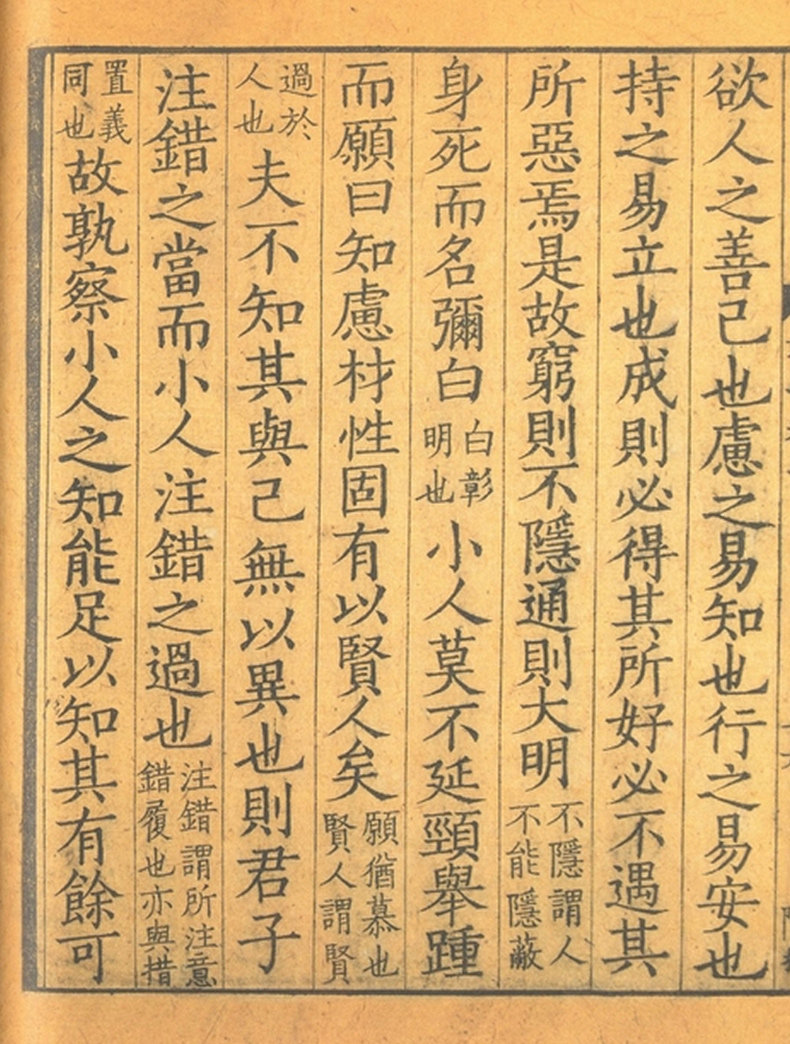 欲人之善己也慮之易知也行之易安也
持之易立也成則必得其所好必不遇其
所惡焉是故窮則不隱通則大明不隱謂人不能隱蔽
身死而名彌白白彰明也小人莫不延頸舉踵
而願曰知慮材性固有以賢人矣願猶慕也賢人謂賢
過於人也夫不知其與己無以異也則君子
注錯之當而小人注錯之過也注錯謂所注意錯履也亦與措
置義同也故孰察小人之知能足以知其有餘可